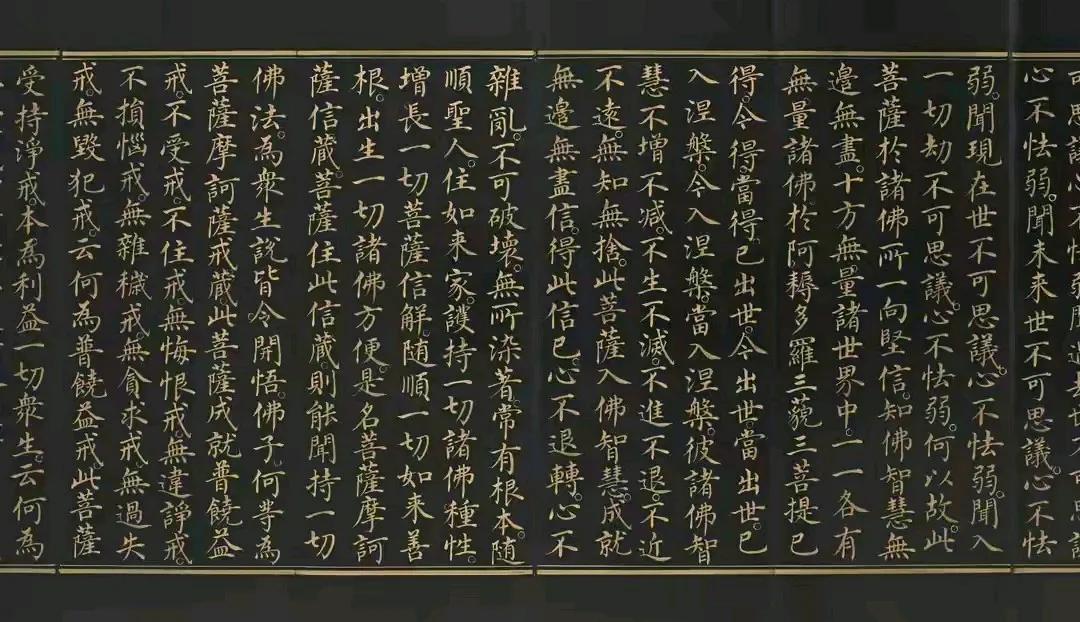 可思議心不怯弱。聞過去世不可思議
心不怯弱。聞未来世不可思議。心不怯
弱。聞現在世不可思議。心不怯弱。聞入
一切劫不可思議。心不怯弱。何以故。此
菩薩於諸佛所一向堅信。知佛智慧無
邊無盡。十方無量諸世界中。一一各有
無量諸佛。於阿耨多羅三藐三菩提已
得。今得。當得。已出世。今出世。當出世。已
入涅槃。今入涅槃。當入涅槃。彼諸佛智
慧不增不减。不生不滅。不進不退。不近
不遠。無知無捨。此菩薩入佛智慧。成就
無邊無盡信。得此信已。心不退轉。心不
雜亂。不可破壞。無所染著。常有根本。随
順聖人。住如来家。護持一切諸佛種性。
增長一切菩薩信解。随順一切如来善
根。出生一切諸佛方便。是名菩薩摩訶
薩信藏。菩薩住此信藏。則能聞持一切
佛法。為衆生說。皆令開悟。佛子。何等為
菩薩摩訶薩戒藏。此菩薩成就普饒益
戒。不受戒。不住戒。無悔恨戒。無違諍戒。
不損惱戒。無雜穢戒。無貪求戒。無過失
戒。無毀犯戒。云何為普饒益戒。此菩薩
受持淨戒。本為利益一切衆生。云何為